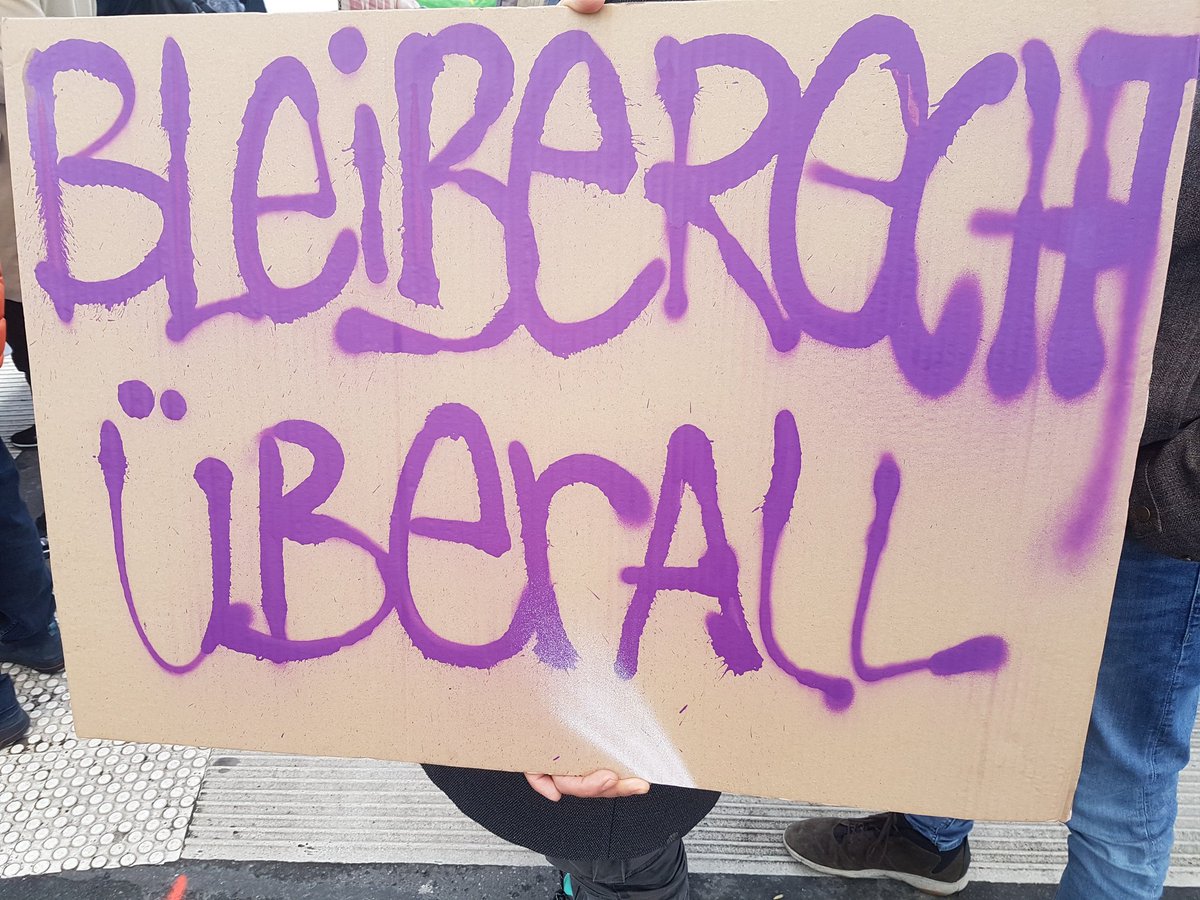 BLeiBeReCHT
ÜBerALL